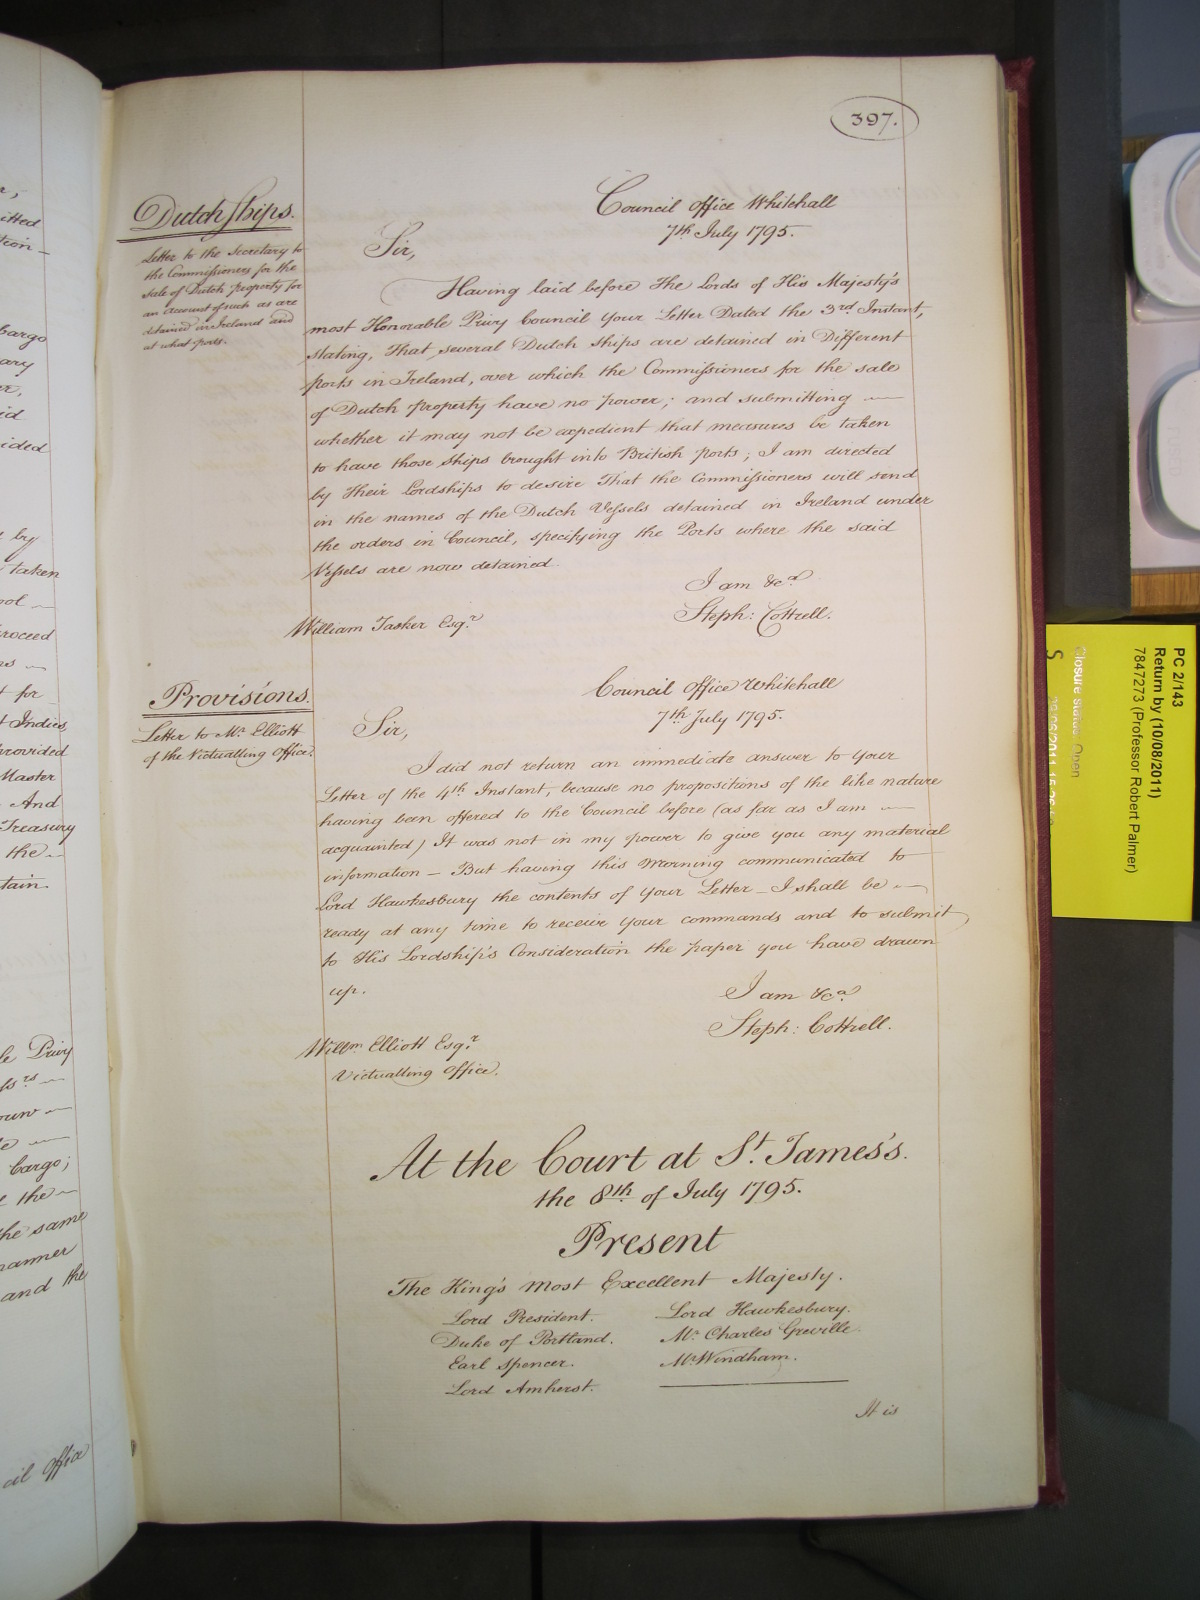 397.
Dutch Ships.
Letter to the Secretary to
the Commissioners for the
sale of Dutch property for
an account of such as are
detained in Ireland and
at what ports.
Council Office Whitehall
7th July 1795.
Sir,
Having laid before The Lords of His Majesty's
most Honorable Privy Council your Letter Dated the 3rd Instant,
stating, That several Dutch ships are detained in Different
ports in Ireland, over which the Commissioners for the sale
of Dutch property have no power; and submitting
whether it may not be expedient that measures be taken
to have those ships brought into British ports; I am directed
by Their Lordships to desire That the Commissioners will send
in the names of the Dutch Vessels detained in Ireland under
the orders in Council, specifying the Ports where the said
Vessels are now detained.
I am &ca
Steph: Cottrell.
William Tasker Esqr.
Provisions.
Letter to Mr. Elliott
of the Victualling Office.
Council Office Whitehall
7th July 1795.
Sir,
I did not return an immediate answer to your
Letter of the 4th Instant, because no propositions of the like nature
having been offered to the Council before (as far as I am
acquainted) It was not in my power to give you any material
information – But having this Morning communicated to
Lord Hawkesbury the contents of your Letter – I shall be
ready at any time to receive your commands and to submit
to His Lordship's Consideration the paper you have drawn
up.
I am &ca.
Steph: Cottrell.
Willm Elliott Esqr.
Victualling Office.
At the Court at St. James's.
the 8th of July 1795.
Present
The King's most Excellent Majesty.
Lord President.
Duke of Portland.
Earl Spencer.
Lord Amherst.
Lord Hawkesbury.
Mr. Charles Greville
Mr Windham.
It is
itted
Cargo
ary
id
ided
by
taken
roceed
for
Indies,
rovided
Master
And
Treasury
the
tain.
le Privy
Cargo;
the
the same
and the
cil Office
PC 2/143
Return by (10/08/2011)
7847273 (Professor Robert Palmer)
Closure status: Open
S